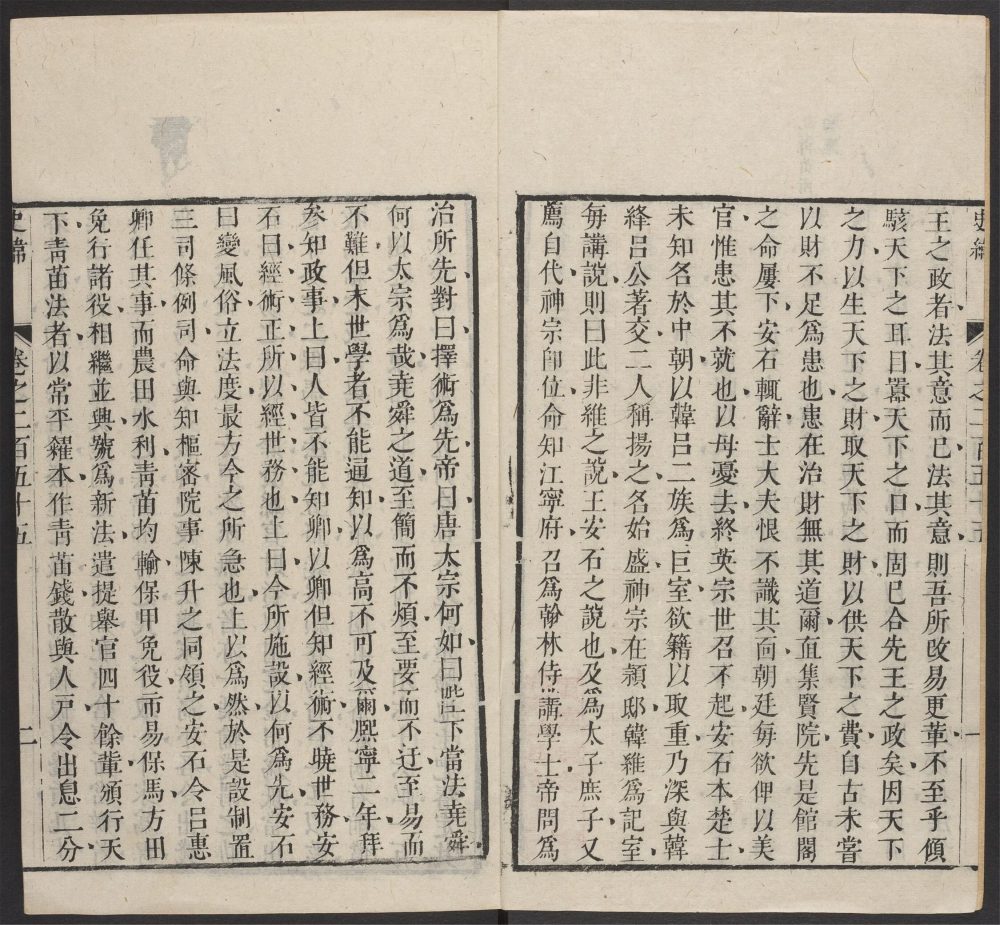 史緯 卷之二百五十五 一
王之政者法其意而已法其意則吾所改易更革不至乎傾
駭天下之耳目囂天下之口而固已合先王之政矣因天下
之力以生天下之財取天下之財以供天下之費自古未嘗
以財不足爲患也患在治財無其道爾直集賢院先是館閣
之命屢下安石輒辭士大夫恨不識其面朝廷每欲俾以美
官惟患其不就也以母憂去終英宗世召不起安石本楚士
未知名於中朝以韓呂二族爲巨室欲籍以取重乃深與韓
絳呂公著交二人稱揚之名始盛神宗在潁邸韓維爲記室
每講說則曰此非維之說王安石之說也及爲太子庶子又
薦自代神宗卽位命知江寧府召爲翰林侍講學士帝問爲
治所先對曰擇術爲先帝曰唐太宗何如曰陛下當法堯舜
何以太宗爲哉堯舜之道至簡而不煩至要而不迂至易而
不難但末世學者不能通知以爲高不可及爾熙寧二年拜
參知政事上曰人皆不能知卿以卿但知經術不曉世務安
石曰經術正所以經世務也上曰今所施設以何爲先安石
曰變風俗立法度最方今之所急也上以爲然於是設制置
三司條例司命與知樞密院事陳升之同領之安石令呂惠
卿任其事而農田水利青苗均輸保甲免役市易保馬方田
免行諸役相繼並興號爲新法遣提舉官四十餘輩頒行天
下青苗法者以常平糴本作青苗錢散與人戶令出息二分
史緯 卷之二百五十五 二